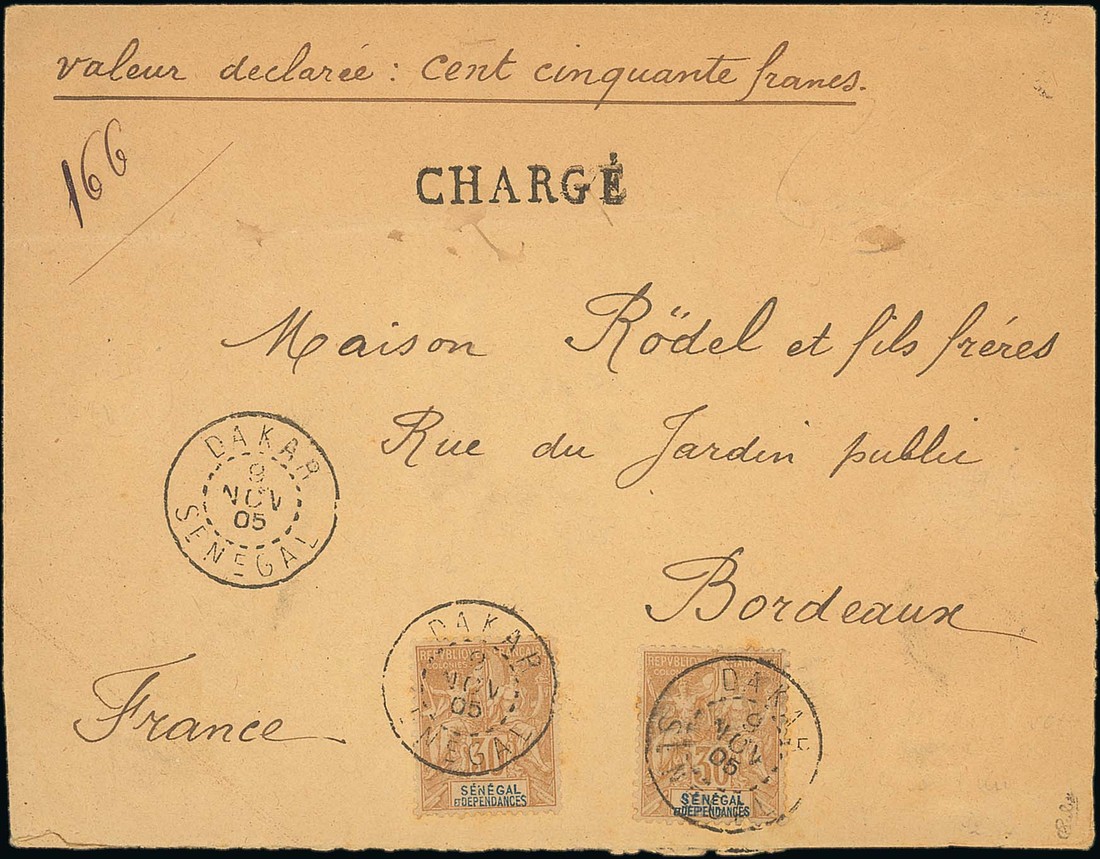 valeur declarée : cent cinquante francs.
166
CHARGÉ
Maison Rödel et fils fréres
Rue du Jardin public
Bordeaux
France
DAKAR
9
NOV
05
SENEGAL
DAKAR
9
NOV
05
SENEGAL
REPUBLIQUE FRANÇAISE
COLONIES
30
SÉNÉGAL
ET DÉPENDANCES
DAKAR
9
NOV
05
REPUBLIQUE FRANÇAISE
COLONIES
30
SÉNÉGAL
ET DÉPENDANCES